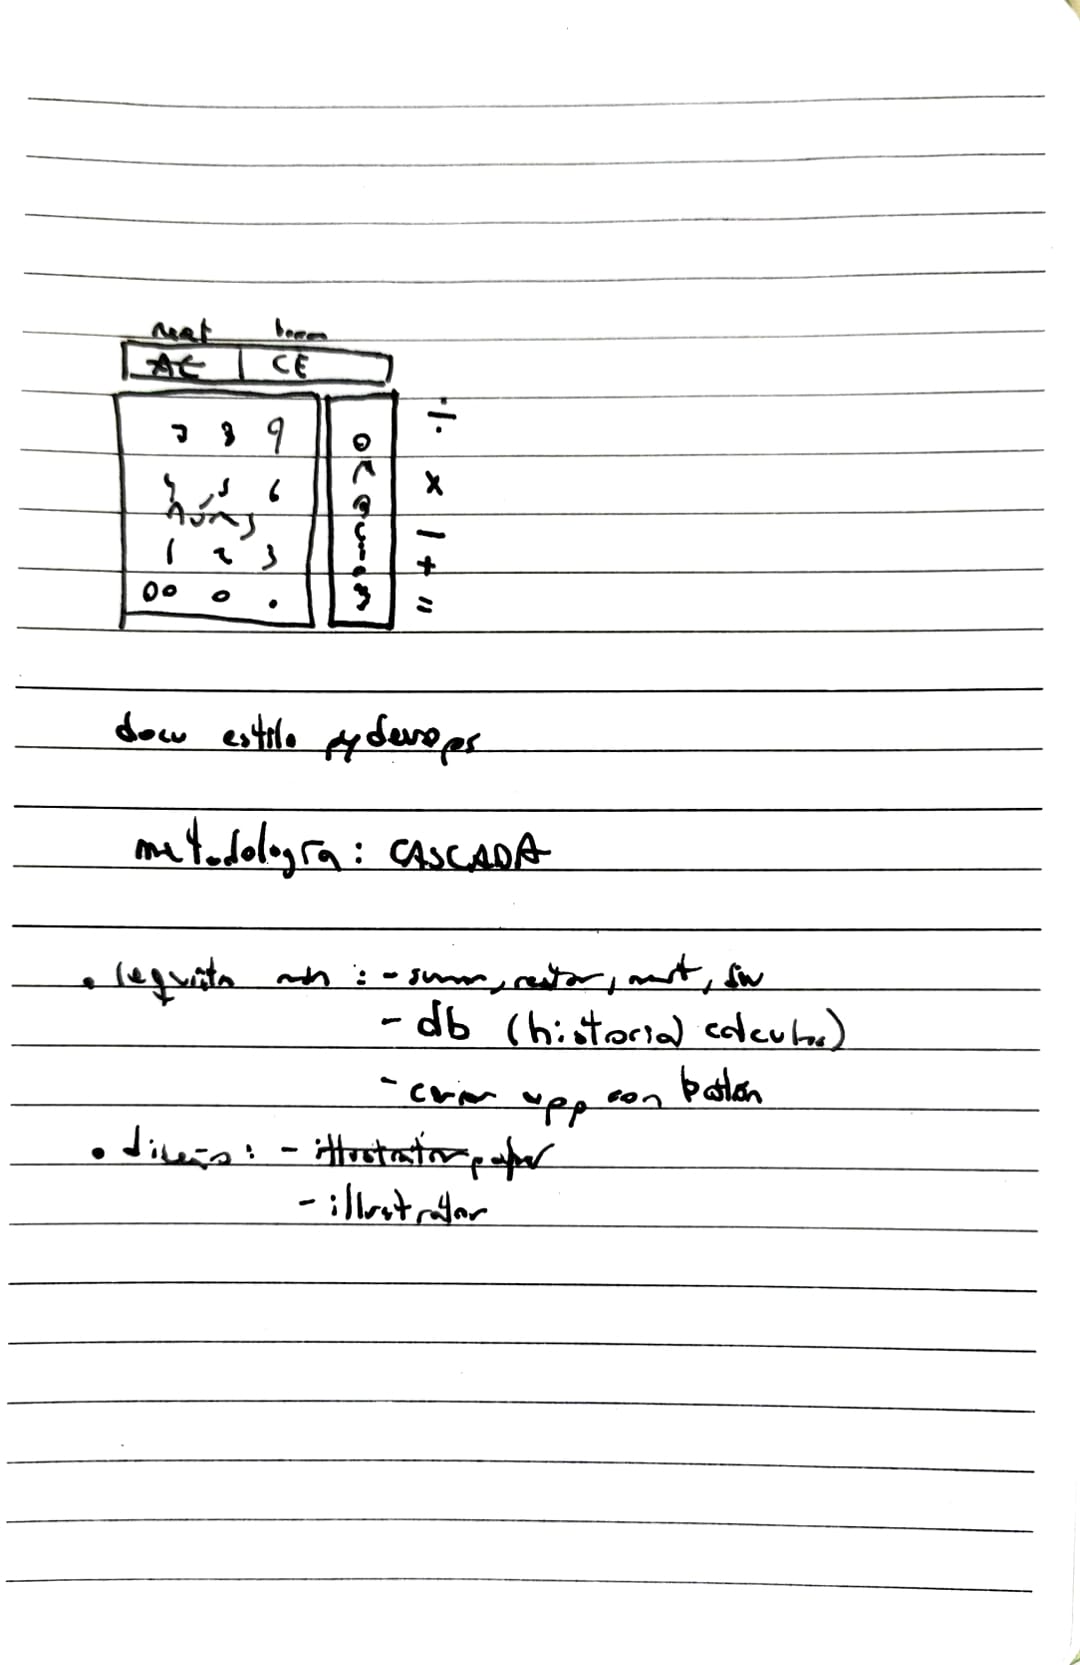 reset borra
AC CE
7 8 9 ÷
4 5 6 x
núms
1 2 3 - +
00 0 . =
docu estilo pydevops
metodología: CASCADA
• requisitos min : - sumar, restar, mult, div
- db (historial calculos)
- cerrar app con botón
• diseño: - illustrator paper
- illustrator